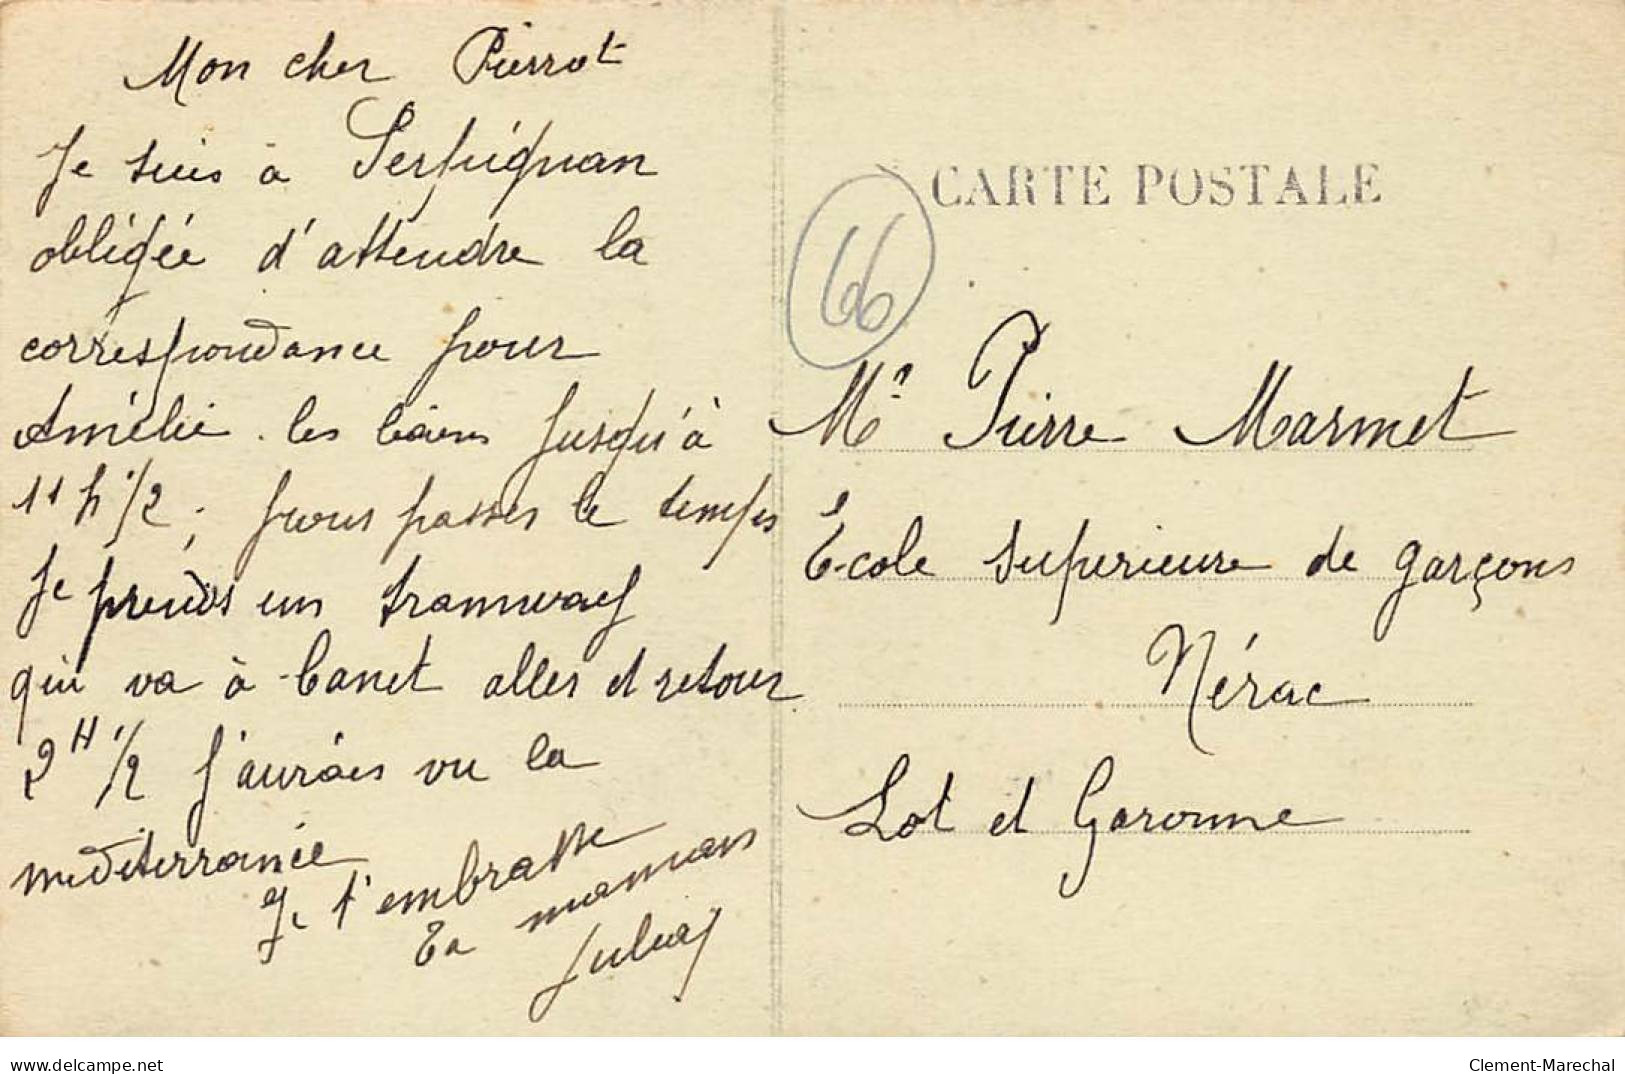 Mon cher Pierrot
Je suis à Perpignan
obligée d'attendre la
correspondance pour
Amélie les bains jusqu'à
11 h 1/2, pour passer le temps
Je prends un tramway
qui va à Canet aller et retour
2 H 1/2 j'aurais vu la
mediterranée
Je t'embrasse
Ta maman
CARTE POSTALE
66
Mr Pierre Marmet
École superieure de garçons
Nérac
Lot et Garonne
delcampe.net
Clement-Marechal